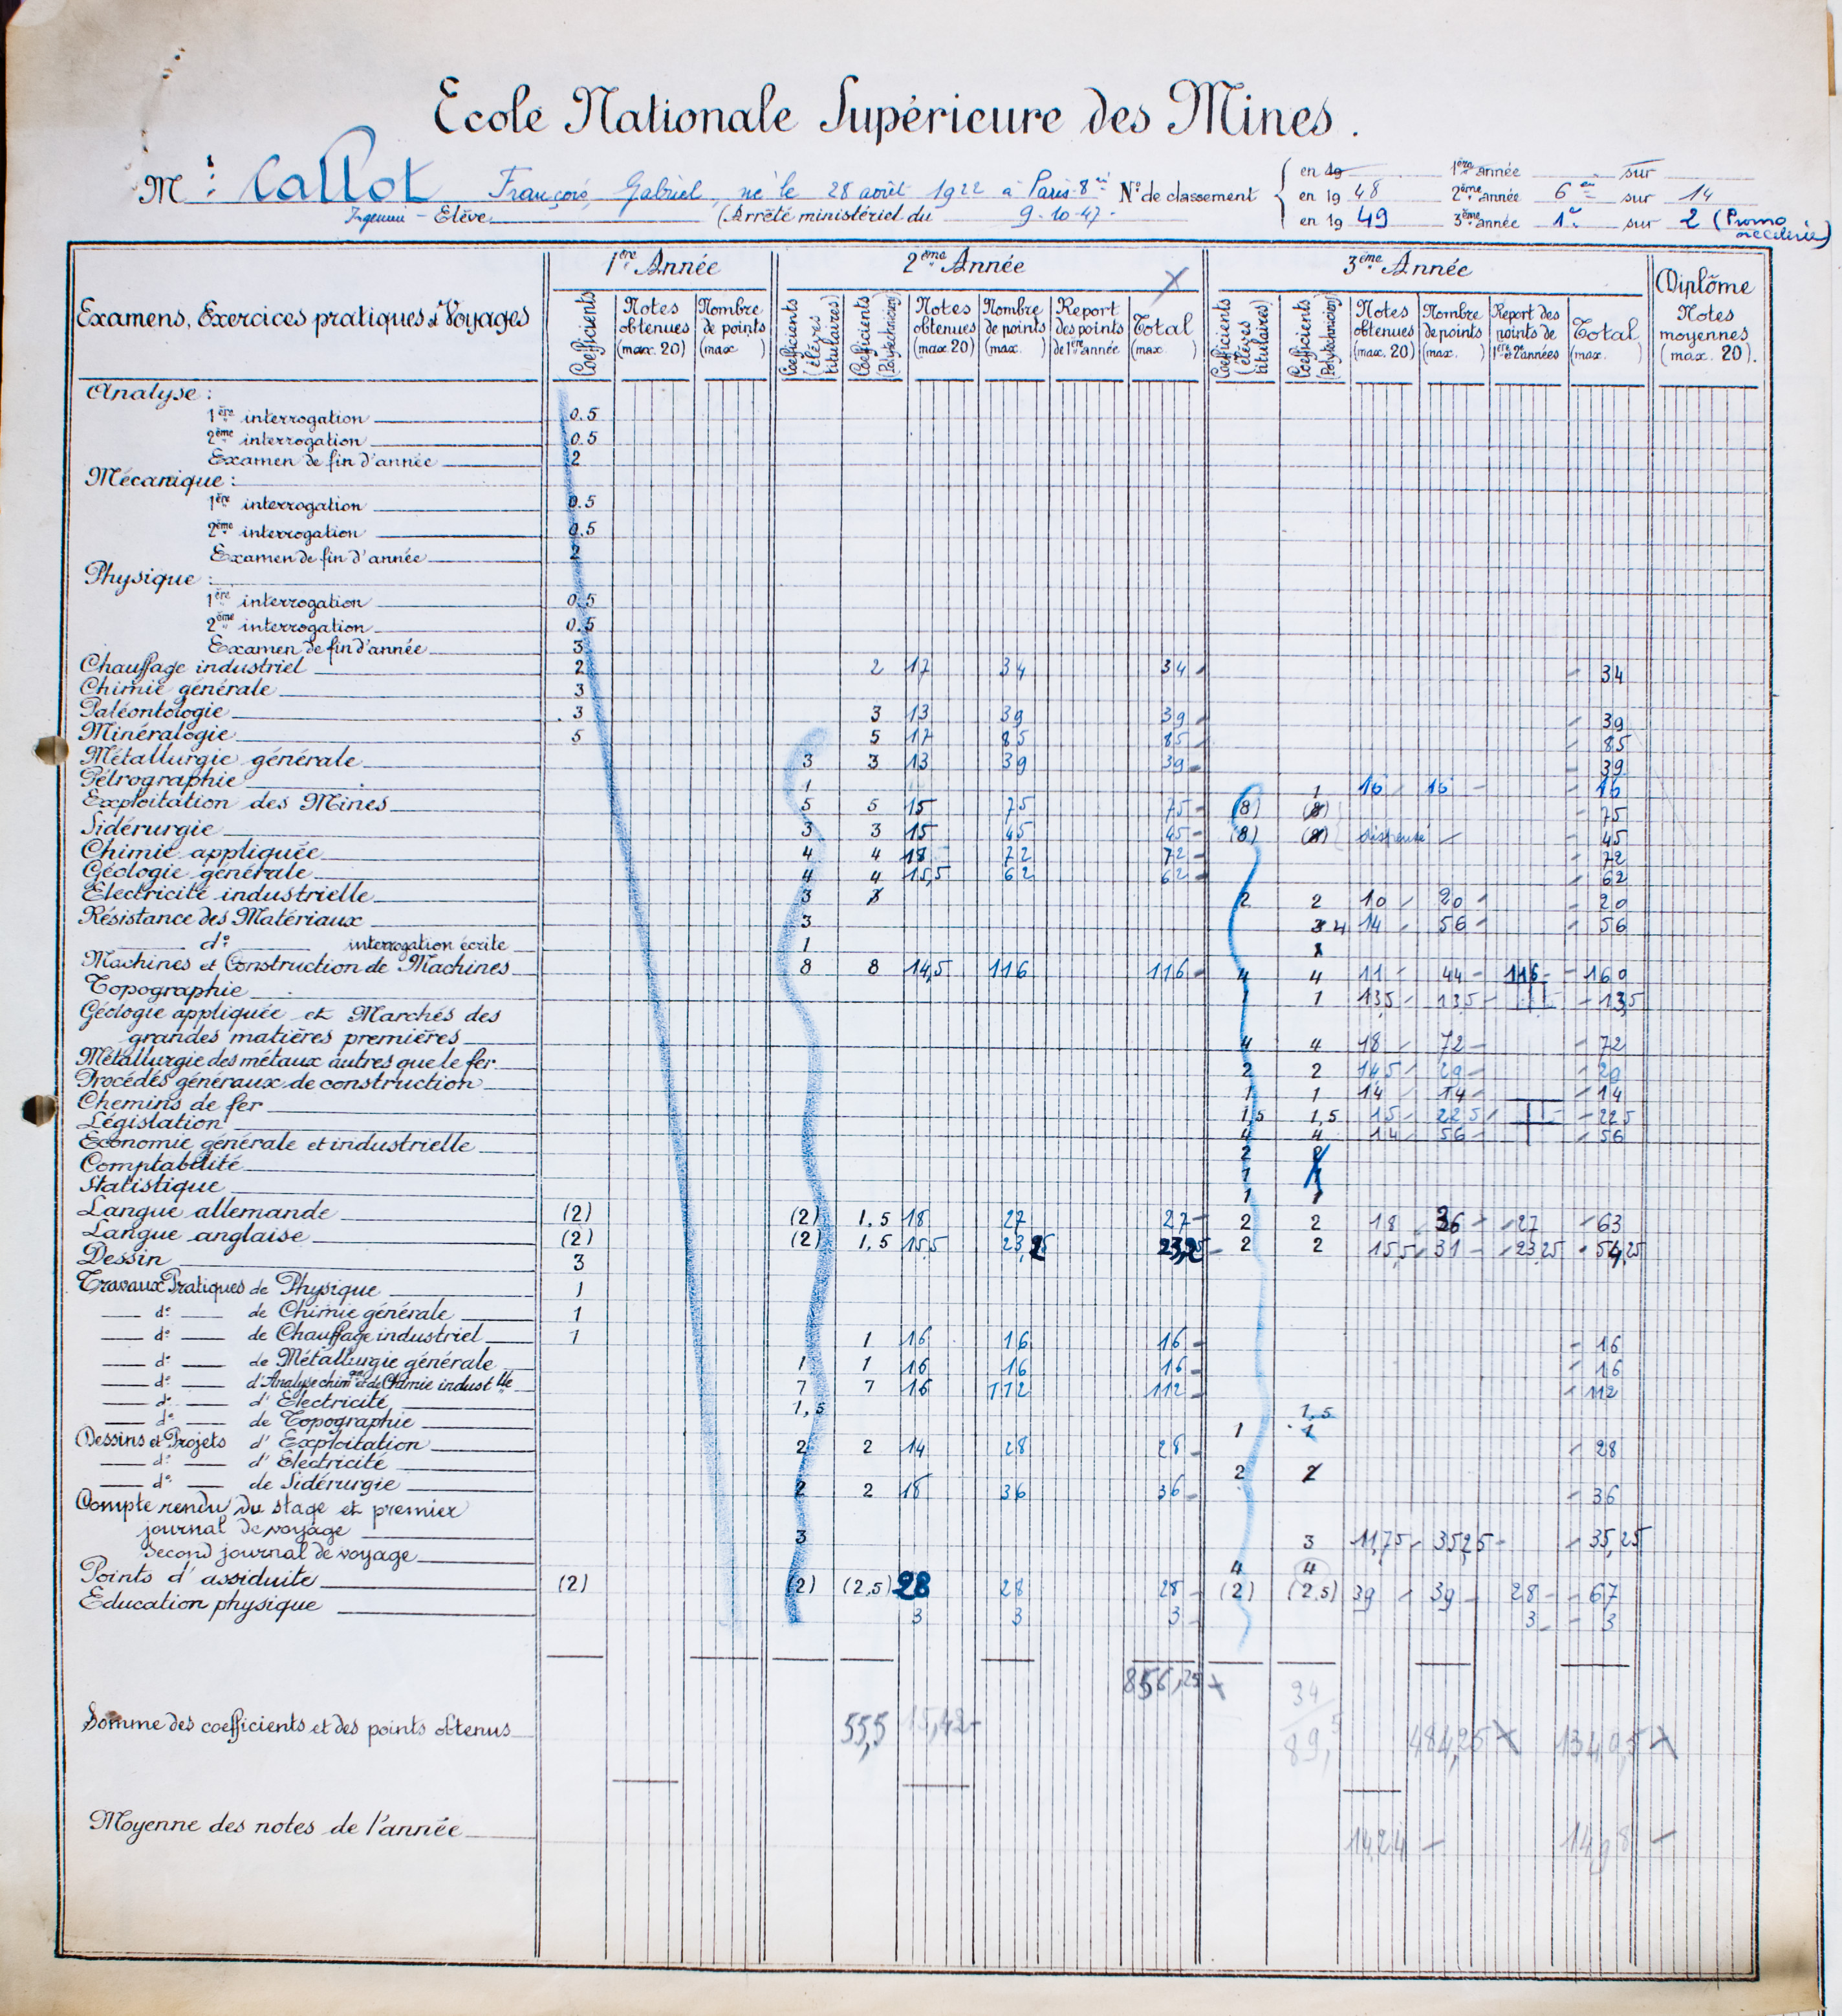 Ecole Nationale Supérieure des Mines.
M. Callot François, Gabriel, né le 28 août 1922 à Paris-8e N° de classement
en 19 1ère année sur
en 19 48 2ème année 6e sur 14
en 19 49 3ème année 1er sur 2 (Promo accélérée)
Elève (Arrêté ministériel du 9-10-47.
Examens, Exercices pratiques et Voyages
1ère Année 2ème Année 3ème Année Diplôme
Coefficients Notes obtenues (max. 20) Nombre de points (max )
Coefficients (élèves titulaires) Coefficients (Polytechniciens) Notes obtenues (max 20) Nombre de points (max. ) Report des points de 1ère année Total (max )
Coefficients (élèves titulaires) Coefficients (Polytechniciens) Notes obtenues (max 20) Nombre de points (max. ) Report des points de 1ère et 2e années Total (max. )
Notes moyennes (max. 20).
Analyse :
1ère interrogation 0.5
2ème interrogation 0.5
Examen de fin d'année 2
Mécanique :
1ère interrogation 0.5
2ème interrogation 0.5
Examen de fin d'année 2
Physique :
1ère interrogation 0.5
2ème interrogation 0.5
Examen de fin d'année 3
Chauffage industriel 2 2 17 34 34 34
Chimie générale 3
Paléontologie 3 3 13 39 39 39
Minéralogie 5 5 17 85 85 85
Métallurgie générale 3 3 13 39 39 39
Pétrographie 1 1 16 16 16
Exploitation des Mines 5 5 15 75 75 (8) (8) 75
Sidérurgie 3 3 15 45 45 (8) (8) dispensé 45
Chimie appliquée 4 4 18 72 72 72
Géologie générale 4 4 15,5 62 62 62
Electricité industrielle 3 3 2 2 10 20 20
Résistance des Matériaux 3 3 4 14 56 56
d° interrogation écrite 1 1
Machines et Construction de Machines 8 8 14,5 116 116 4 4 11 44 116 160
Topographie 1 1 13,5 13,5 13,5
Géologie appliquée et Marchés des
grandes matières premières 4 4 18 72 72
Métallurgie des métaux autres que le fer 2 2 14,5 29 29
Procédés généraux de construction 1 1 14 14 14
Chemins de fer 1,5 1,5 15 22,5 22,5
Législation 4 4 14 56 56
Economie générale et industrielle 2 2
Comptabilité 1 1
Statistique 1 1
Langue allemande (2) (2) 1,5 18 27 27 2 2 18 36 27 63
Langue anglaise (2) (2) 1,5 15,5 23,25 23,25 2 2 15,5 31 23,25 54,25
Dessin 3
Travaux Pratiques de Physique 1
d° de Chimie générale 1
d° de Chauffage industriel 1 1 16 16 16 16
d° de Métallurgie générale 1 1 16 16 16 16
d° d'Analyse chimque et de Chimie industlle 7 7 16 112 112 112
d° d'Electricité 1,5 1,5
d° de Topographie 1 1
Dessins et Projets d'Exploitation 2 2 14 28 28 28
d° d'Electricité 2 2
d° de Sidérurgie 2 2 18 36 36 36
Compte rendu du stage et premier
journal de voyage 3 3 11,75 35,25 35,25
Second journal de voyage 4 4
Points d'assiduité (2) (2) (2,5) 28 28 28 (2) (2,5) 39 39 28 67
Education physique 3 3 3 3 3
856,25
34
Somme des coefficients et des points obtenus 55,5 15,42 89,5 484,25 1340,5
Moyenne des notes de l'année 14,24 14,98